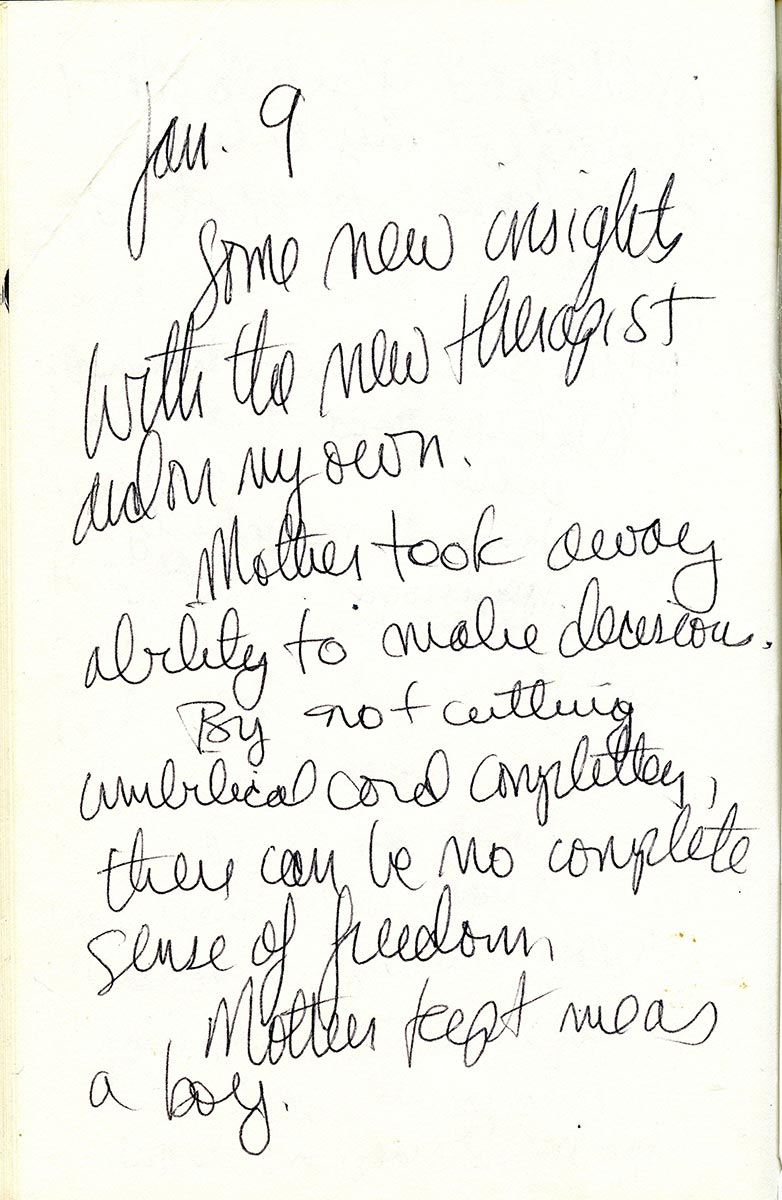 Jan. 9
Some new insights
with the new therapist
and on my own.
Mother took away
ability to make decision.
By not cutting
umbilical cord completley,
there can be no complete
sense of freedom
Mother kept me as
a boy.